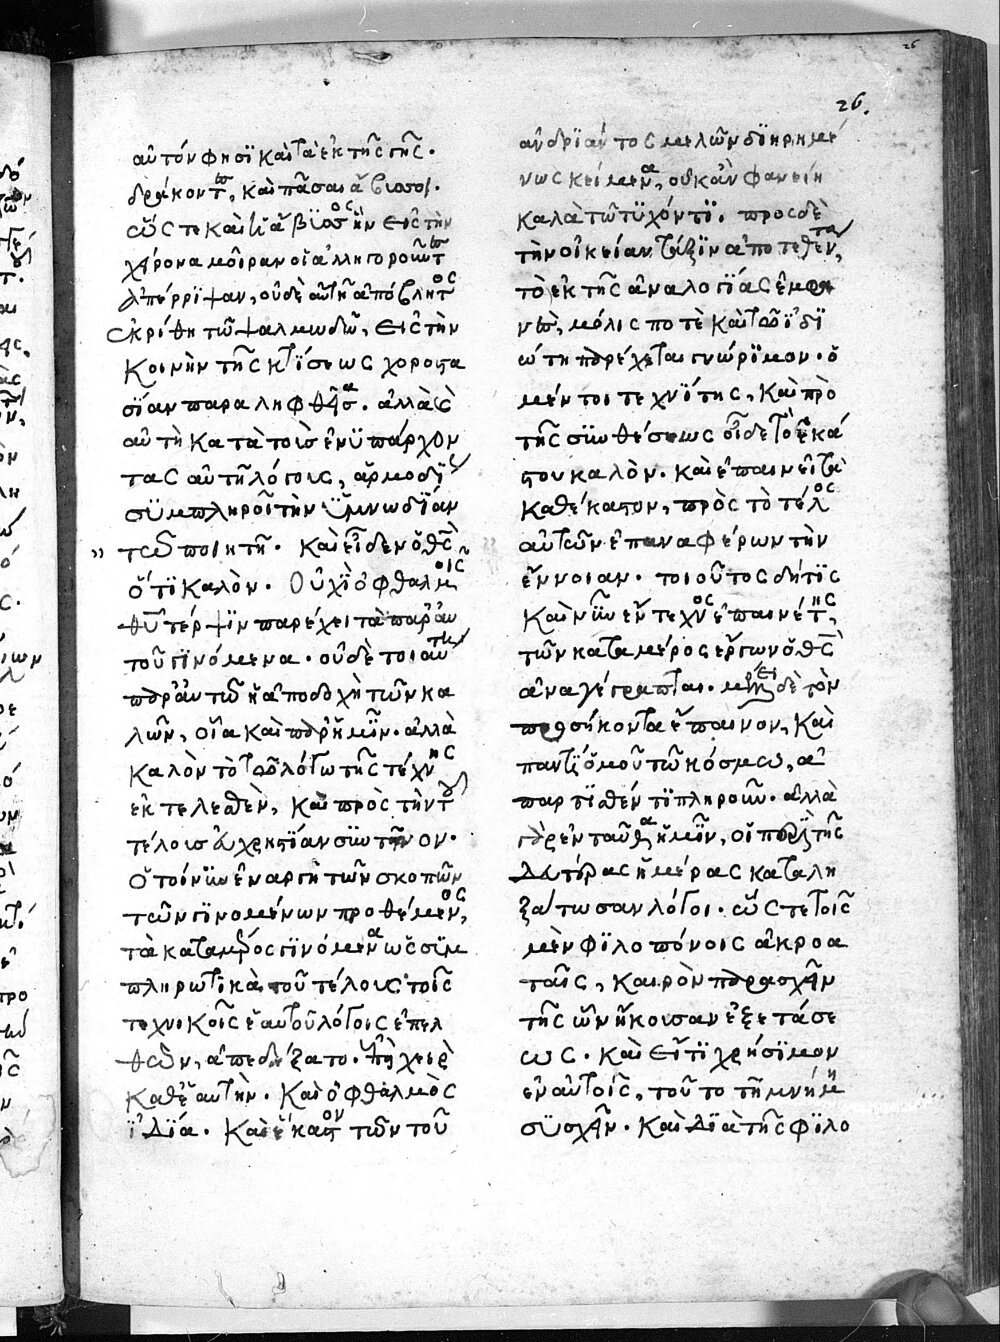 αὐτόν φησὶ καὶ τὰ ἐκ τῆς γῆς·
δράκοντες, καὶ πᾶσαι ἄβυσσοι.
ὥστε καὶ ἡ ἄβυσσος ἣν εἰς τὴν
χείρονα μοῖραν οἱ ἀλληγοροῦντες
ἀπέρριψαν, οὐδὲ αὐτὴ ἀπόβλητος
ἐκρίθη τῶ ψαλμωδῶ, εἰς τὴν
κοινὴν τῆς κτίσεως χοροστα
σίαν παραληφθεῖσα. ἀλλὰ καὶ
αὐτὴ κατὰ τοὺς ἐνϋπάρχον
τας αὐτῆ λόγους, ἁρμοδίως
συμπληροῖ τὴν ὑμνωδίαν
τῶ ποιητῆ. καὶ εἶδεν ὁ θεὸς
ὅτι καλόν. Οὐχὶ ὀφθαλμοῖς
θεοῦ τέρψιν παρέχει τὰ παρ' αὐ
τοῦ γινόμενα. οὐδὲ τοιαύτη
παρ' αὐτῶ ἡ ἀποδοχὴ τῶν κα
λῶν, οἵα καὶ παρ' ἡμῖν. ἀλλὰ
καλὸν τὸ τῶ λόγω τῆς τέχνης
ἐκτελεσθὲν, καὶ πρὸς τὴν τοῦ
τέλους εὐχρηστίαν συντεῖνον.
Ὁ τοίνυν ἐναργῆ τὸν σκοπὸν
τῶν γινομένων προθέμενος,
τὰ κατὰ μέρος γινόμενα ὡς συμ
πληρωτικὰ τοῦ τέλους τοῖς
τεχνικοῖς ἑαυτοῦ λόγοις ἐπελ
θὼν, ἀπεδέξατο. ἐπεὶ χεὶρ
καθ' ἑαυτὴν. καὶ ὀφθαλμὸς
ἰδία. καὶ ἕκαστον τῶν τοῦ
26.
ἀνδριάντος μελῶν διηρημέ
νως κείμενα, οὐκ ἂν φανείη
καλὰ τῶ τυχόντι. πρὸς δὲ
τὴν οἰκείαν τάξιν ἀποτεθέντα,
τὸ ἐκ τῆς ἀναλογίας ἐμφα
νὲς, μόλις ποτὲ καὶ τῶ ἰδι
ώτη παρέχεται γνώριμον. ὁ
μέν τοι τεχνίτης, καὶ πρὸ
τῆς συνθέσεως οἶδε τὸ ἑκά
στου καλὸν. καὶ ἐπαινεῖ τὰ
καθέκαστον, πρὸς τὸ τέλος
αὐτῶν ἐπαναφέρων τὴν
ἔννοιαν. τοιοῦτος δή τις
καὶ νῦν ἔντεχνος ἐπαινέτης,
τῶν κατὰ μέρος ἔργων ὁ θεὸς
ἀναγέγραπται. μέλλει δὲ τὸν
προσήκοντα ἔπαινον, καὶ
παντὶ ὁμοῦ τῶ κόσμω, ἀ
παρτισθέντι πληροῦν. ἀλλὰ
γὰρ ἐνταῦθα ἡμῖν, οἱ περὶ τῆς
δευτέρας ἡμέρας καταλη
ξάτωσαν λόγοι. ὥστε τοῖς
μὲν φιλοπόνοις ἀκροα
ταῖς, καιρὸν παρασχεῖν
τῆς ὧν ἤκουσαν ἐξετάσε
ως. καὶ εἴ τι χρήσιμον
ἐν αὐτοῖς, τοῦτο τῆ μνήμη
συσχεῖν. καὶ διὰ τῆς φιλο